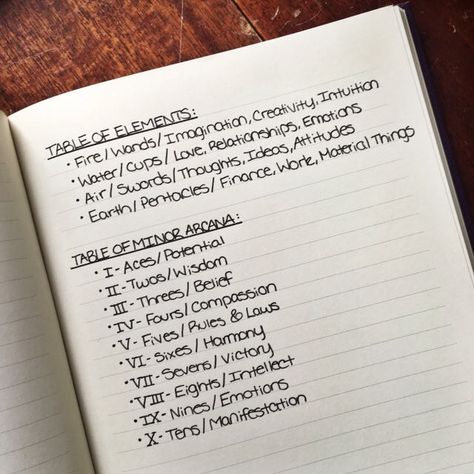 TABLE OF ELEMENTS:
• Fire/Wands/Imagination, Creativity, Intuition
• Water/Cups/Love, Relationships, Emotions
• Air/Swords/Thoughts, Ideas, Attitudes
• Earth/Pentacles/Finance, Work, Material Things
TABLE OF MINOR ARCANA:
• I- Aces/Potential
• II- Twos/Wisdom
• III- Threes/Belief
• IV- Fours/Compassion
• V- Fives/Rules & Laws
• VI- Sixes/Harmony
• VII- Sevens/Victory
• VIII- Eights/Intellect
• IX- Nines/Emotions
• X- Tens/Manifestation